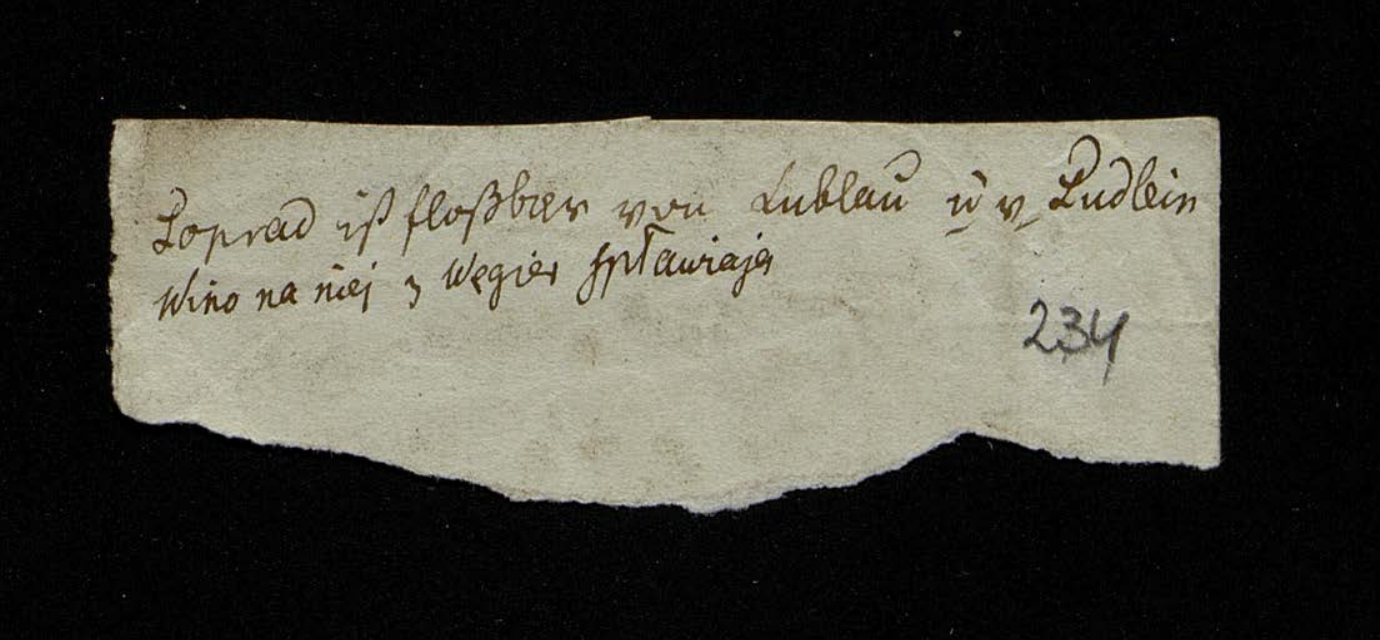 Poprad ist floßbar von Lublau u v Pudlein
Wino na niej z Węgier spławiają
234